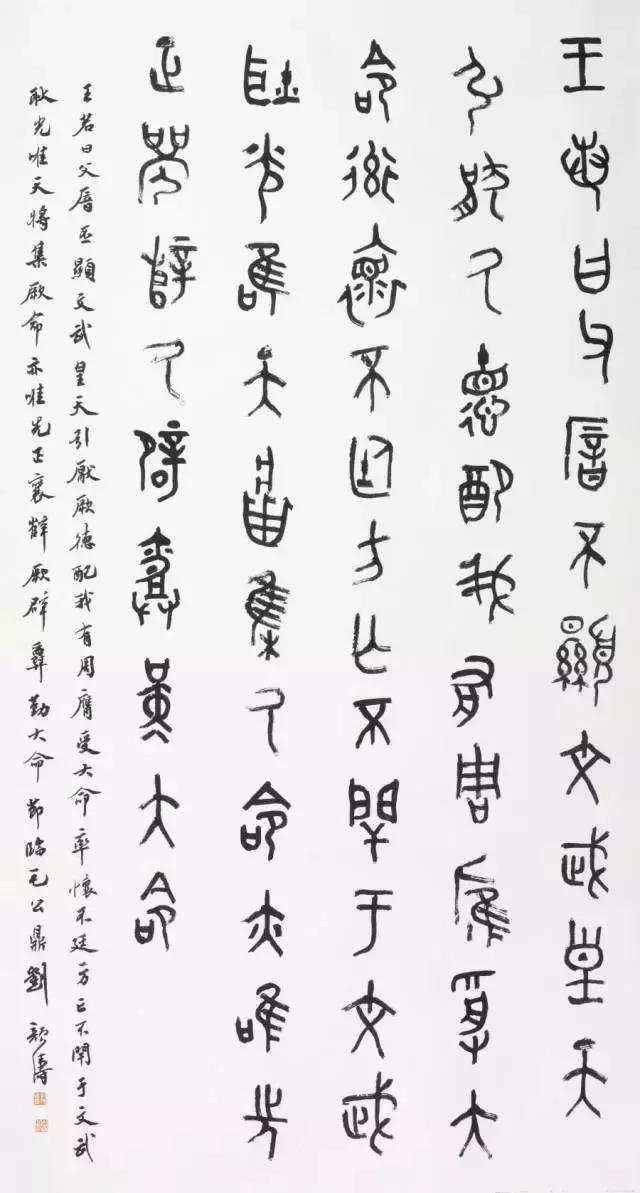 王若曰父厝不顯文武皇天
引厭厥德配我有周膺受大
命率懷不廷方亡不閈于文武
耿光唯天將集厥命亦唯先
正襄辥厥辟堇大命
王若曰父厝丕顯文武皇天引厭厥德配我有周膺受大命率懷不廷方亡不閈于文武
耿光唯天將集厥命亦唯先正襄辥厥辟勤大命節臨毛公鼎劉顏濤